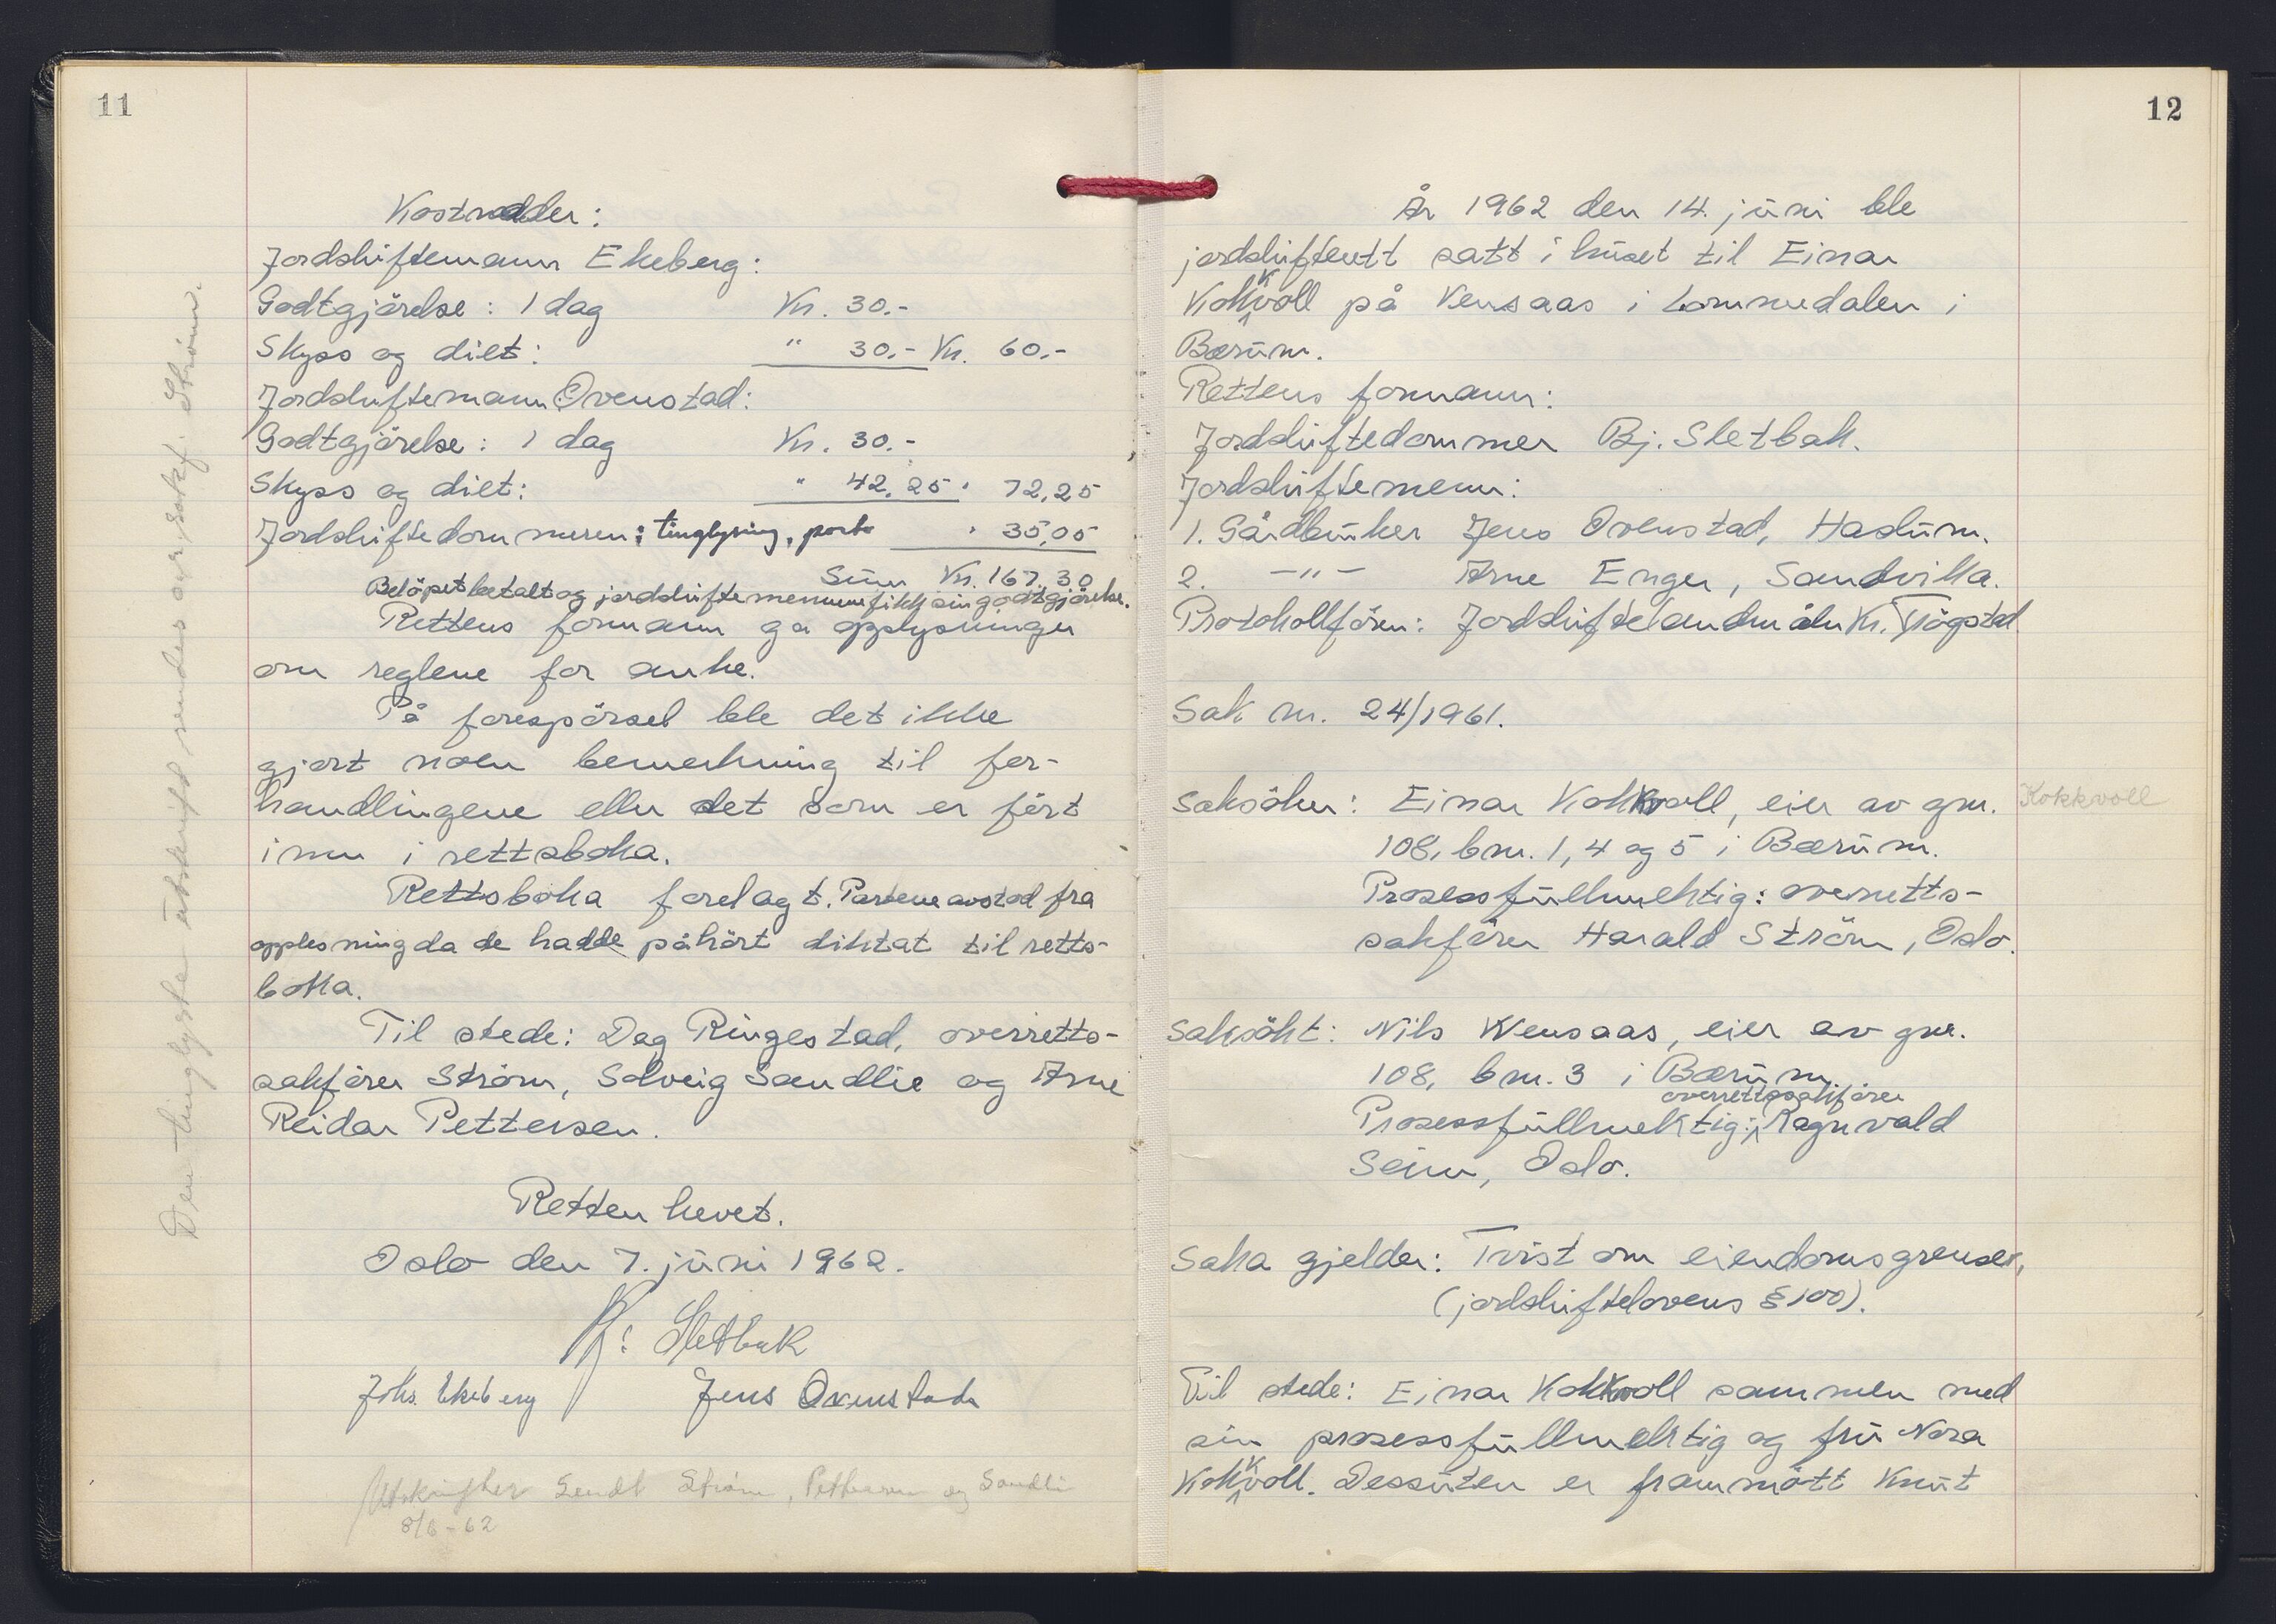 11
Kostnader:
Jordskiftemann Ekeberg:
Godtgjörelse: 1 dag Kr. 30.-
Skyss og diet: " 30.- Kr. 60.-
Jordskiftemann Ovenstad:
Godtgjörelse: 1 dag Kr. 30.-
Skyss og diet: " 42,25 " 72,25
Jordskiftedommeren: tinglysing, porto " 35,05
Sum Kr. 167,30
Belöpet betalt og jordskiftemennene fikk sin godtgjörelse.
Rettens formann ga opplysninger
om reglene for anke.
På forespörsel ble det ikke
gjort noen bemerkning til for-
handlingene eller det som er fört
inn i rettsboka.
Rettsboka forelagt. Partene avstod fra
opplesning da de hadde påhört diktat til retts-
boka.
Til stede: Dag Ringestad, overretts-
sakförer Ström, Solveig Sandlie og Arne
Reidar Pettersen.
Retten hevet.
Oslo den 7. juni 1962.
Bj. Sletbak
Johs. Ekeberg Jens Ovenstad
Utskrifter sendt Ström, Pettersen og Sandli
8/6-62
Den tinglyste utskrift sendes overrsakf. Ström.
12
År 1962 den 14. juni ble
jordskifterett satt i huset til Einar
Kokkvoll på Kensaas i Lommedalen i
Bærum.
Rettens formann:
Jordskiftedommer Bj. Sletbak.
Jordskiftemenn:
1. Gårdbruker Jens Ovenstad, Haslum.
2. -"- Arne Enger, Sandvika.
Protokollförer: Jordskiftelandmåler Kr. Trögstad
Sak nr. 24/1961.
Saksöker: Einar Kokkvoll, eier av gnr.
Kokkvoll
108, bnr. 1, 4 og 5 i Bærum.
Prosessfullmektig: overretts-
sakförer Harald Ström, Oslo.
Saksökt: Nils Kensaas, eier av gnr.
108, bnr. 3 i Bærum.
Prosessfullmektig: overrettssakförer Ragnvald
Seim, Oslo.
Saka gjelder: Tvist om eiendomsgrenser,
(jordskiftelovens § 100).
Til stede: Einar Kokkvoll sammen med
sin prosessfullmektig og fru Nora
Kokkvoll. Dessuten er frammött Knut